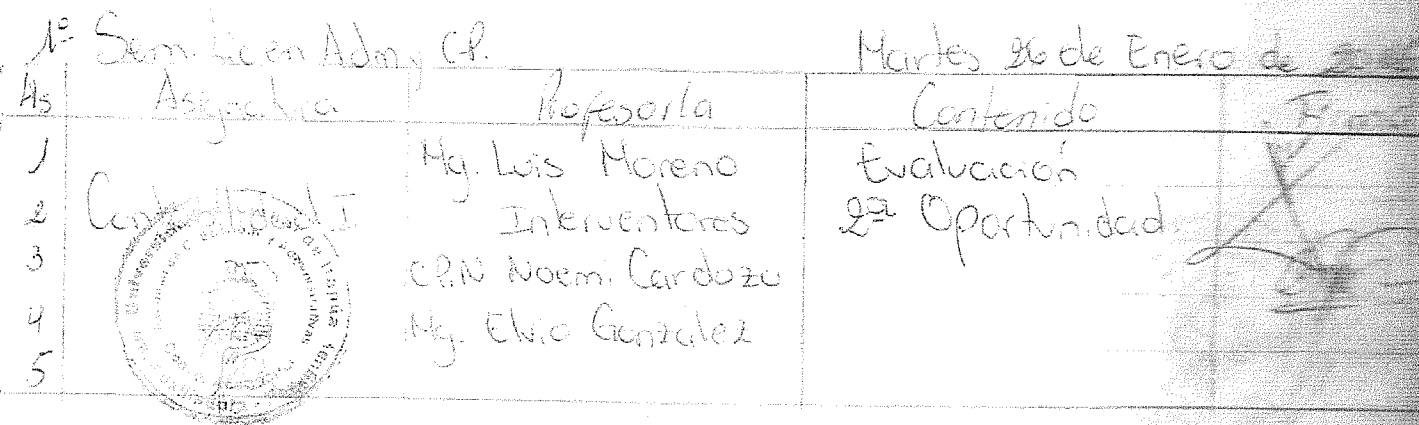 1º Sem. Lic en Adm y CP. Martes 26 de Enero de
Hs Asignatura Profesor/a Contenido
1 Mg. Luis Moreno Evaluación
2 Contabilidad I Interventores 2ª Oportunidad
3 CP.N Noemi Cardozo
4 Mg. Elvio González
5